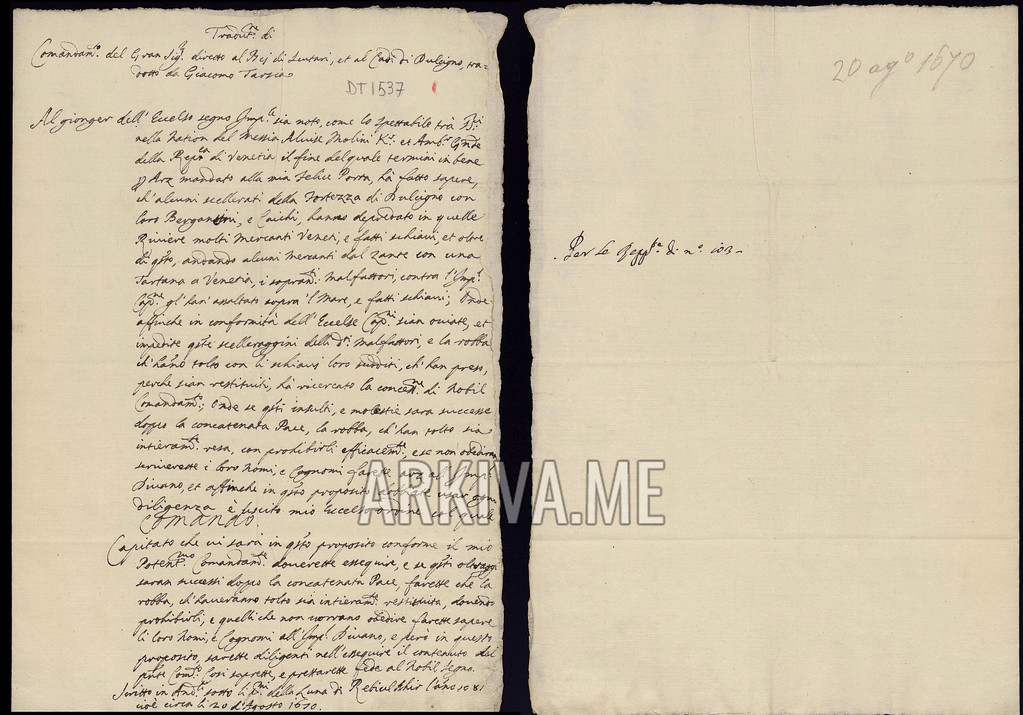 Tradut.ne di
Comandam.to del Gran Sig.r diretto al Bei di Scutari, et al Cadì di Dulcigno, tra-
dotto da Giacomo Tarsia
DT 1537
Al gionger dell'Eccelso segno Imp.le sia noto, come lo spettabile trà
nella Nation del Messia Aluise Molini K.r et Amb.r Grãde
della Rep.ca di Venetia il fine del quale termini in bene
Arz mandato alla mia Felice Porta, hà fatto sapere,
ch'alcuni scellerati della Fortezza di Dulcigno con
loro Bergantini, e Caichi, hanno depredato in quelle
Riviere molti Mercanti Veneti, e fatti schiaui, et oltre
di q.sto, andando alcuni Mercanti dal Zante con una
Tartana a Venetia, i sopran.ti Malfattori, contra l'Imp.li
Cap.ni gl'han' assaltato sopra 'l Mare, e fatti schiaui; Onde
affinche in conformità dell'Eccelse Cap.ni sian ouiate, et
impedite q.ste scelleraggini delli d.ti Malfattori, e la robba
ch'hãno tolto con li schiaui loro sudditi, ch'han preso,
perche sian restituiti, hà ricercato la concess.ne di Nobil
Comandam.to; Onde se q.sti insulti, e molestie sarà successe
doppo la concatenata Pace, la robba, ch'han tolto sia
intieram.te resa, con prohibirli efficacem.te, e se non obedirãn
scriuereste i loro Nomi, e Cognomi
Diuano, et affinche in q.sto proposito usar ogni
diligenza è uscito mio Eccelso ordine col quale
COMANDO.
Capitato che vi sarà in q.sto proposito conforme il mio
Potent.mo Comandam.to douerette essequir, e se q.sti oltraggi
saran successi doppo la concatenata Pace, farette che la
robba, ch'haueranno tolto sia intieram.te restituita, douendo
prohibirli, e quelli che non vorrano obedire farette sapere
li loro Nomi, e Cognomi all'Imp.l Diuano, e però in questo
proposito, sarette diligenti nell'esseguire il contenuto del
p.nte Com.to Così saprette, e prestarette fede al Nobil Segno.
Scritto in And.li sotto li p.mi della Luna di Rebiul Ahir l'anno 1081
cioè circa li 20 d'Agosto 1670.
20 ag.o 1670
Per le n.o 103
ARKIVA.ME